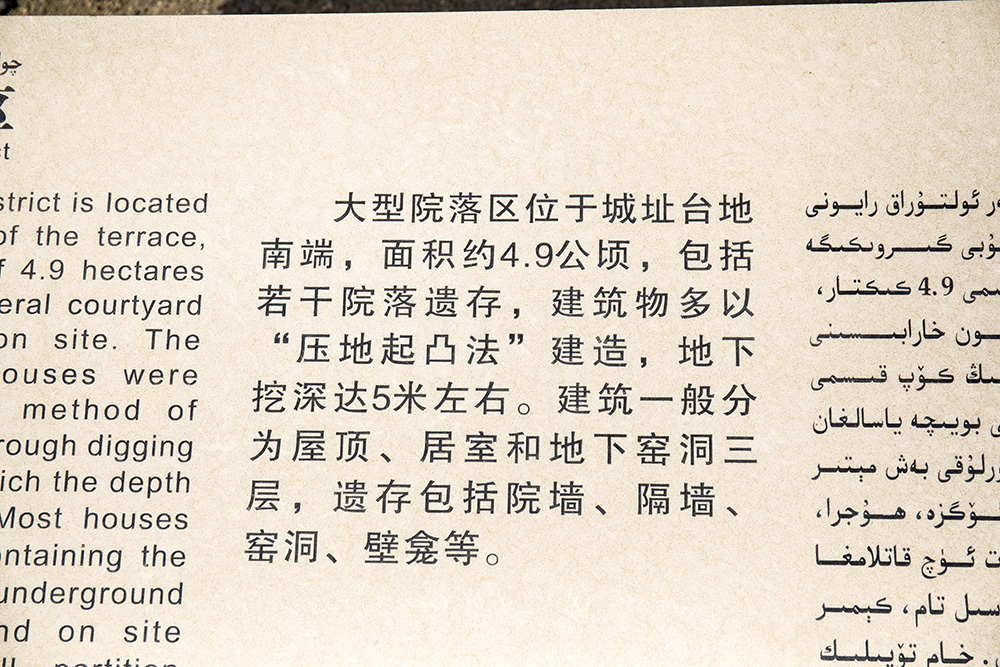 strict is located
of the terrace,
4.9 hectares
eral courtyard
on site. The
ouses were
method of
rough digging
ich the depth
Most houses
ontaining the
underground
nd on site
大型院落区位于城址台地
南端，面积约4.9公顷，包括
若干院落遗存，建筑物多以
“压地起凸法”建造，地下
挖深达5米左右。建筑一般分
为屋顶、居室和地下窑洞三
层，遗存包括院墙、隔墙、
窑洞、壁龛等。
ئولتۇراق رايونى
گىرۋىكىگە
4.9 گىكتار،
خارابىسىنى
كۆپ قىسمى
بويىچە ياسالغان
بەش مېتىر
ھۇجرا،
ئۈچ قاتلامغا
تام، كېمىر
خام تۆپىلىك